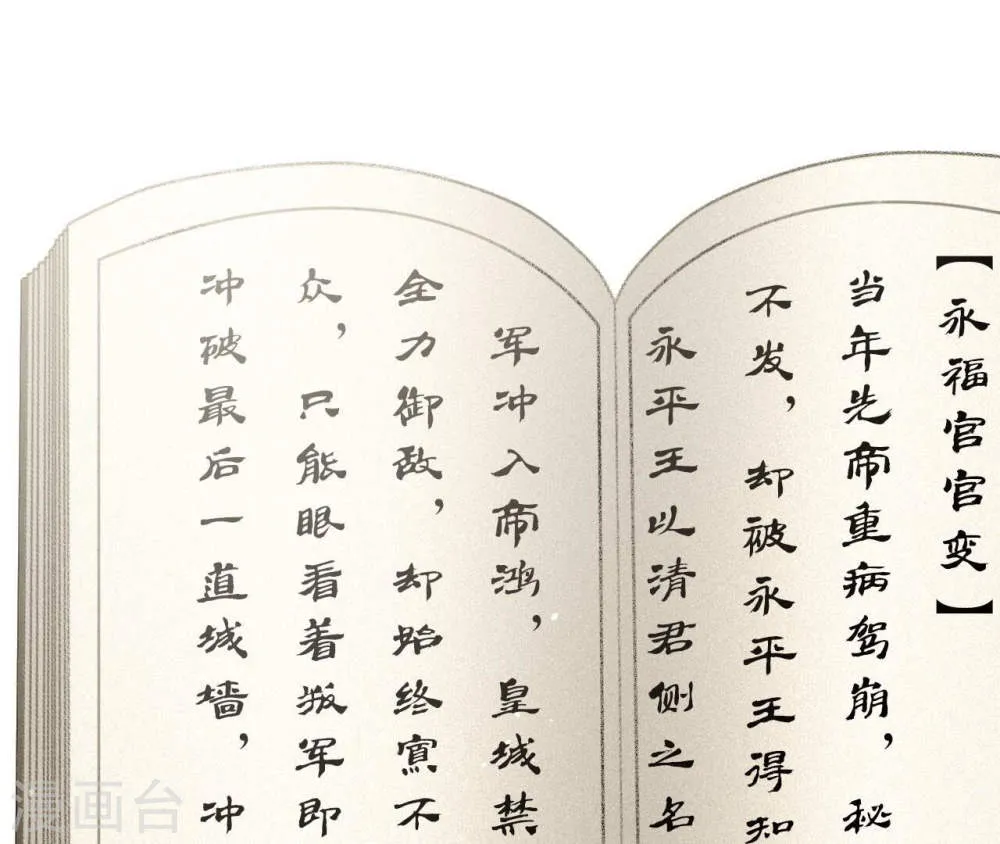 【永福宫宫变】
当年先帝重病驾崩，秘
不发，却被永平王得知
永平王以清君侧之名
军冲入帝鸿，皇城禁
全力御敌，却始终寡不
众，只能眼看着叛军即
冲破最后一道城墙，冲
漫画台